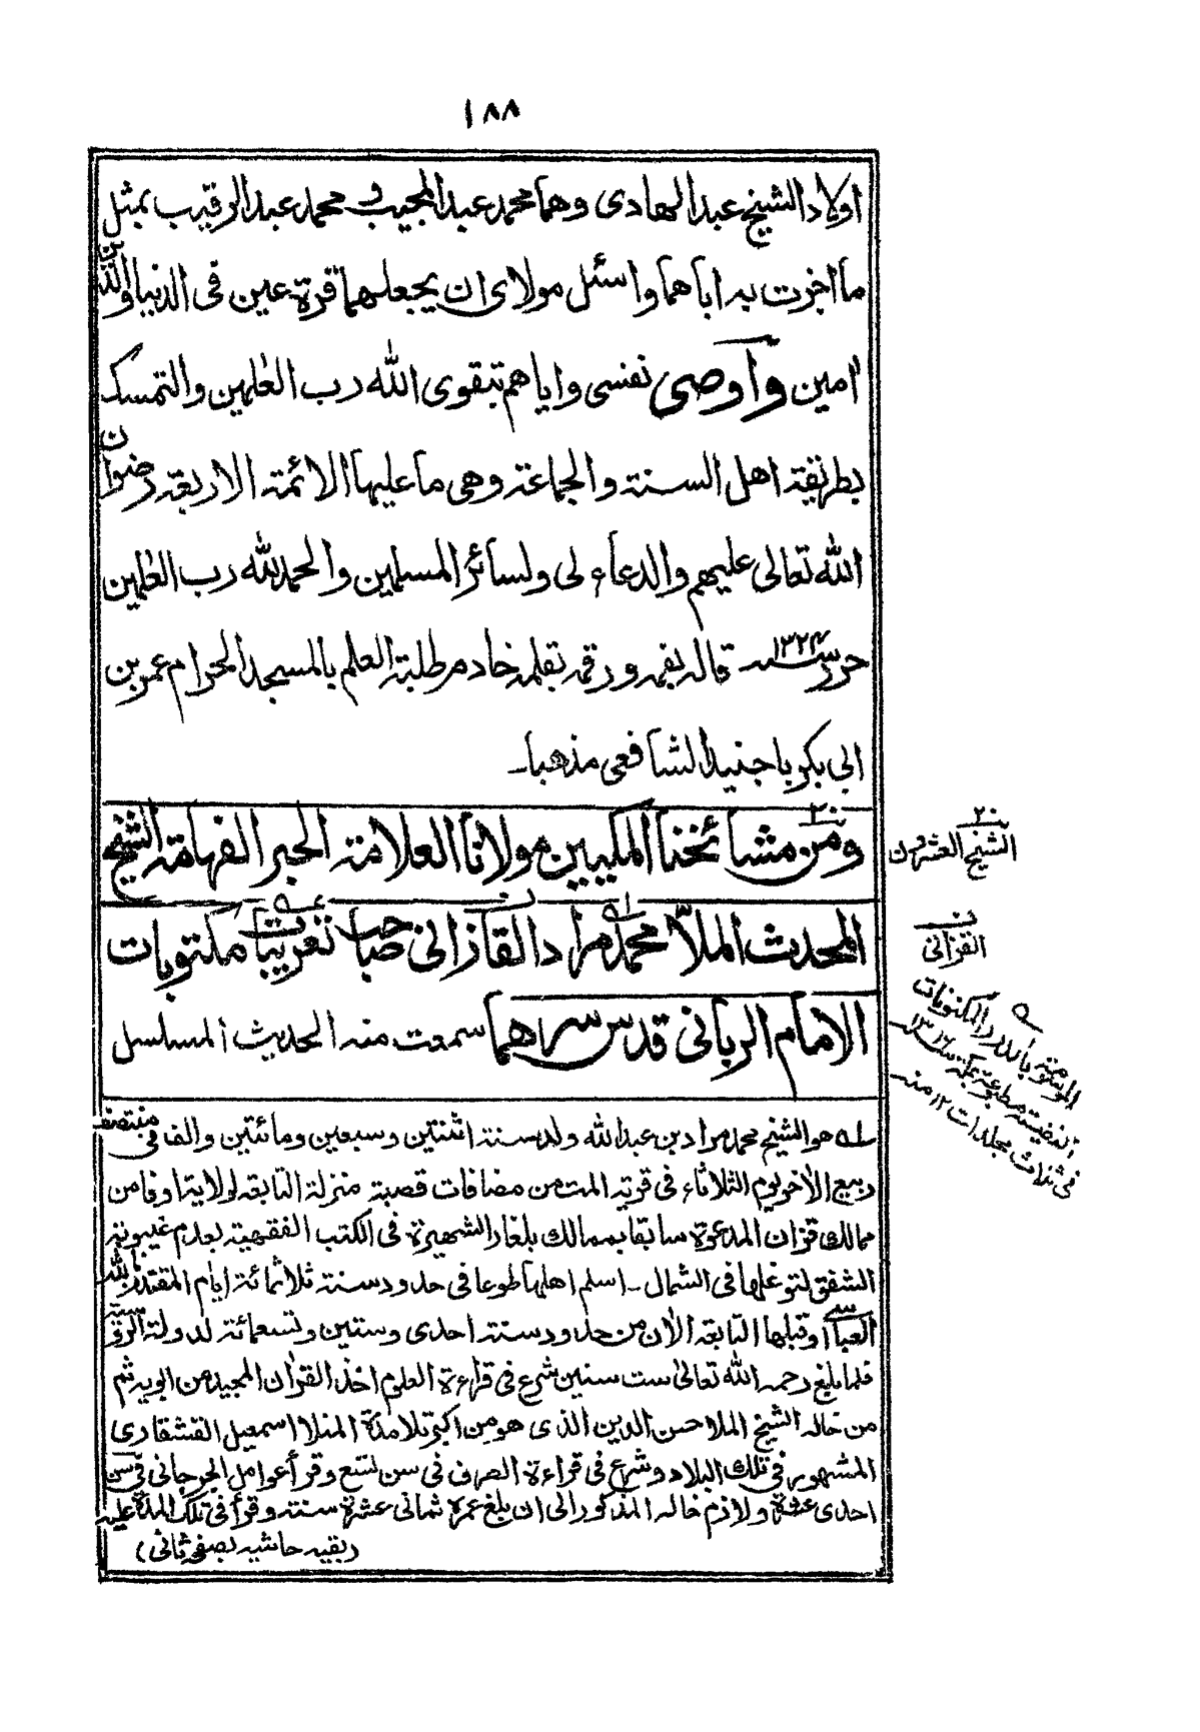 ١٨٨
اولاد الشيخ عبد الهادى وهما محمد عبد المجيب و محمد عبد الرقيب بمثل
ما اجزت به اباهما واسئل مولاى ان يجعلهما قرة عين فى الدنيا والدين
امين واوصى نفسى واياهم بتقوى الله رب العلمين والتمسك
بطريقة اهل السنة والجماعة وهى ما عليها الائمة الاربعة رضوان
الله تعالى عليهم والدعاء لى ولسائر المسلمين والحمد لله رب العلمين
حرر سنة ١٣٢٣ قاله بفمه ورقمه بقلمه خادم طلبة العلم بالمسجد الحرام عمر بن
ابى بكر باجنيد الشافعى مذهبا۔
ومن مشائخنا المكيين مولانا العلامة الحبر الفهامة الشيخ
المحدث الملّا محمد مراد القازانى صاحب تعريبات مكتوبات
الامام الربانى قدس سرهما سمعت منه الحديث المسلسل
٢٠
الشيخ العشرون
القزانى
الموسومة بالدرر المكنونات
النفيسة مطبوعة بمكة سنة ١٣١٦
فى ثلاث مجلدات ١٢ منه
له هو الشيخ محمد مراد بن عبد الله ولد سنة اثنتين وسبعين ومائتين والف فى منتصف
ربيع الاخر يوم الثلاثاء فى قرية المت من مضافات قصبة منزلة التابعة لولاية اوفا من
ممالك قزان المدعوة سابقا بممالك بلغار الشهيرة فى الكتب الفقهية بعدم غيبوبة
الشفق لتوغلها فى الشمال ۔ اسلم اهلها طوعا فى حدود سنة ثلاثمائة ايام المقتدر بالله
العباسى او قبلها التابعة الان من حدود سنة احدى وستين وتسعمائة لدولة الروسية
فلما بلغ رحمه الله تعالى ست سنين شرع فى قراءة العلوم اخذ القران المجيد من ابويه ثم
من خاله الشيخ الملا حسن الدين الذى هو من اكبر تلامذة المنلا اسمعيل القشقارى
المشهور فى تلك البلاد وشرع فى قراءة الصرف فى سن تسع وقرأ عوامل الجرجانى فى سن
احدى عشرة ولازم خاله المذكور الى ان بلغ عمره ثمانى عشرة سنة وقرأ فى تلك المدة عليه
(بقيه حاشيه بصفحه ثانى)